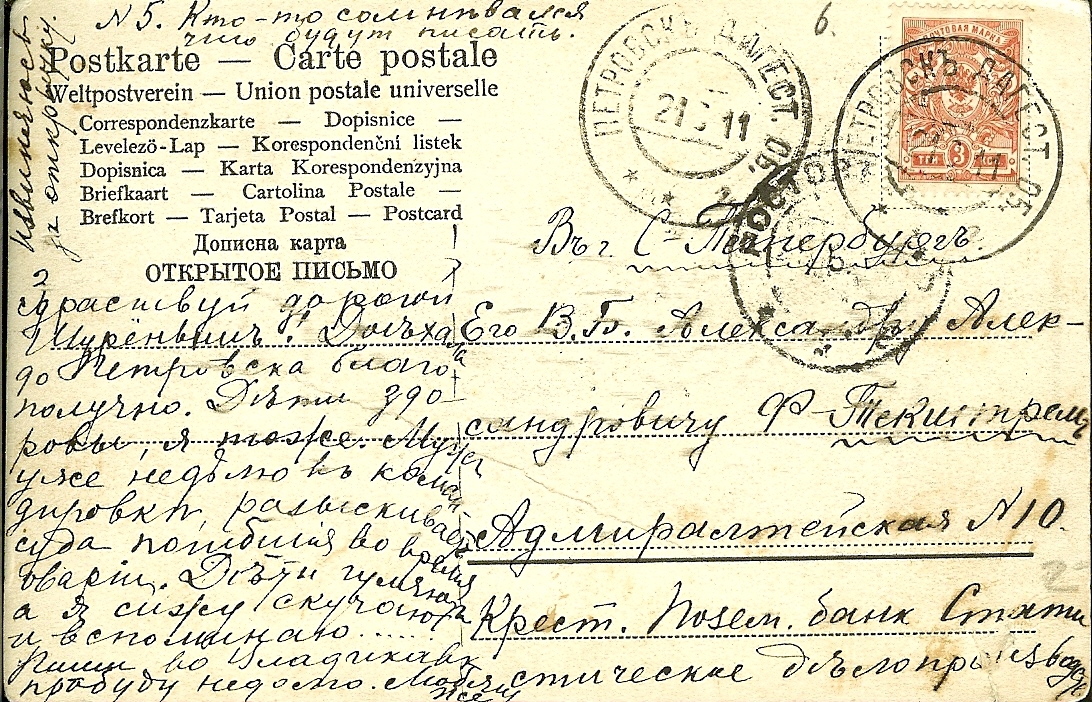 N 5. Кто-то сомнѣвался
что будут писать.
извиняюсь
за открытку.
6.
Postkarte — Carte postale
Weltpostverein — Union postale universelle
Correspondenzkarte — Dopisnice —
Levelező-Lap — Korespondenční listek
Dopisnica — Karta Korespondenzyjna
Briefkaart — Cartolina Postale —
Brefkort — Tarjeta Postal — Postcard
Дописна карта
ОТКРЫТОЕ ПИСЬМО
ПЕТРОВСКЪ ДАГЕСТ. ОБ.
21 11
ПОЧТОВАЯ МАРКА
3
ПЕТРОВСКЪ ДАГЕСТ. ОБ.
11
Здраствуй дорогой
Шурёнышъ! Доѣхала
до Петровска благо-
получно. Дѣти здо-
ровы, я тоже. Мужъ
уже недѣлю въ коман-
дировкѣ, разыскиваетъ
суда погибшія во время
аваріи. Дѣти гуляютъ
а я сижу скучаю
и вспоминаю......
Пиши во Владикавк
пробуду недолго.
Въ г. С-Петербургъ.
Его В.Б. Александру Алек-
сандровичу Ф-
Адмиралтейская N 10.
Крест. Позем. банк Стати
стическое дѣлопроизвод